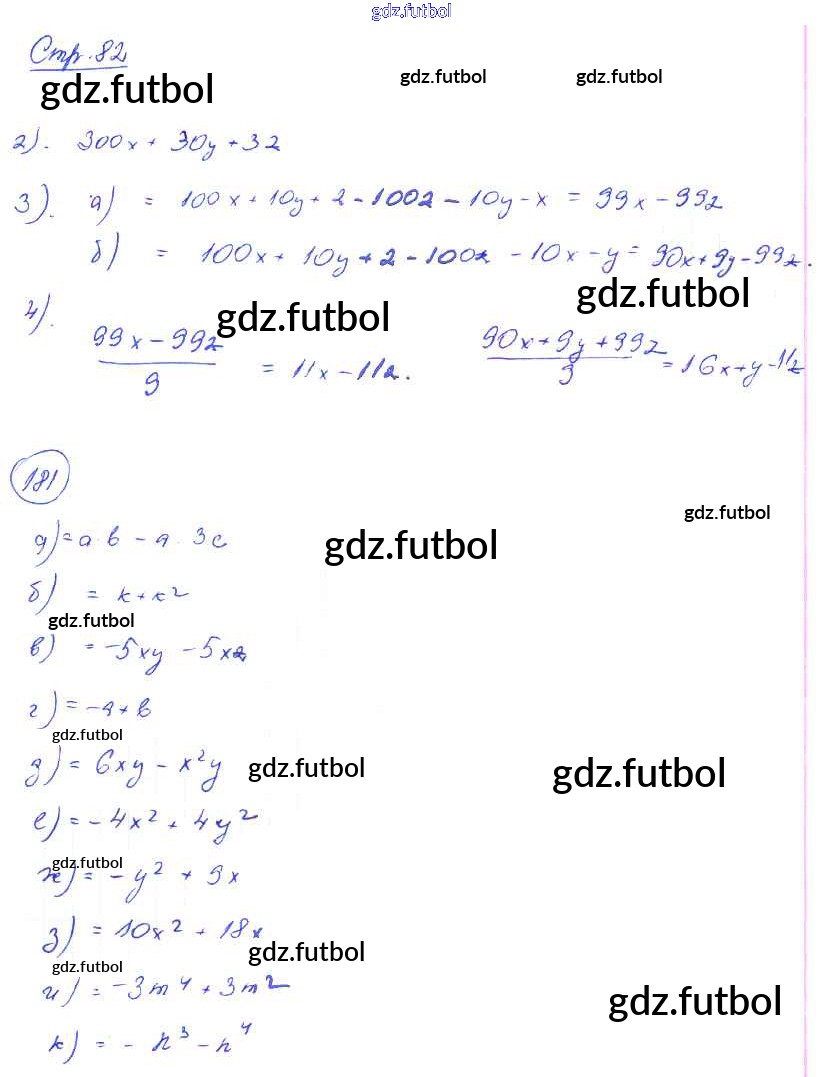 gdz.futbol
Стр. 82
gdz.futbol gdz.futbol gdz.futbol
2). 300x + 30y + 3z
3). а) = 100x + 10y + z - 100z - 10y - x = 99x - 99z
б) = 100x + 10y + z - 100z - 10x - y = 90x + 9y - 99z.
gdz.futbol
4). gdz.futbol
(99x - 99z)/9 = 11x - 11z. (90x + 9y + 99z)/9 = 16x + y - 11z
181
gdz.futbol
а) = a·b - a·3c gdz.futbol
б) = k + k²
gdz.futbol
в) = -5xy - 5xz
г) = -a + b
gdz.futbol
д) = 6xy - x²y gdz.futbol gdz.futbol
е) = -4x² + 4y²
gdz.futbol
ж) = -y² + 9x
з) = 10x² + 18x
gdz.futbol
gdz.futbol
и) = -3m⁴ + 3m² gdz.futbol
к) = -n³ - n⁴